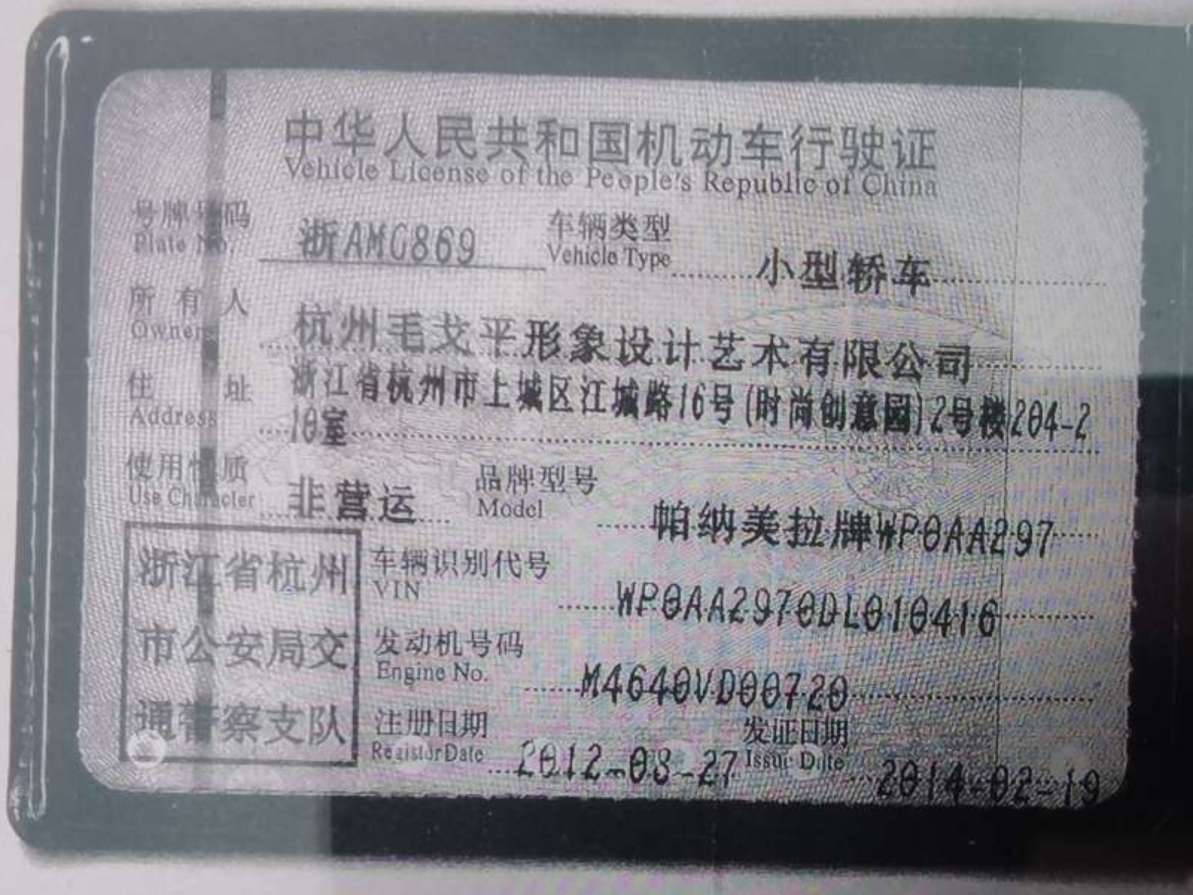 中华人民共和国机动车行驶证
Vehicle License of the People's Republic of China
号牌号码 浙AMG869 车辆类型 小型轿车
Plate No. Vehicle Type
所有人 杭州毛戈平形象设计艺术有限公司
Owner
住址 浙江省杭州市上城区江城路16号(时尚创意园)2号楼204-2
Address 10室
使用性质 非营运 品牌型号 帕纳美拉牌WP0AA297
Use Character Model
浙江省杭州 车辆识别代号 WP0AA2970DL010416
VIN
市公安局交 发动机号码 M4640VD00720
Engine No.
通警察支队 注册日期 2012-08-27 发证日期 2014-02-19
Register Date Issue Date